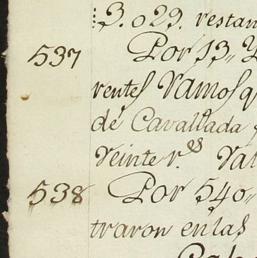 3.029. restan
537 Por 13,, Y
rentes Ramos q
de Cavalgada y
Veinte r.es Val
538 Por 540,,
traron en las